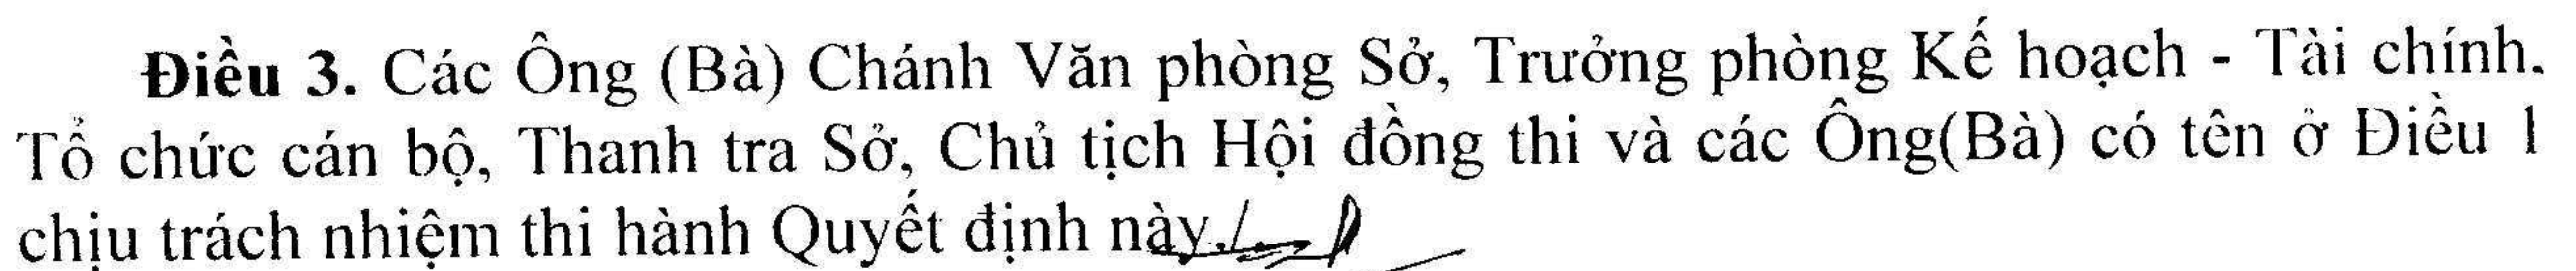 Điều 3. Các Ông (Bà) Chánh Văn phòng Sở, Trưởng phòng Kế hoạch - Tài chính.
Tổ chức cán bộ, Thanh tra Sở, Chủ tịch Hội đồng thi và các Ông(Bà) có tên ở Điều 1
chịu trách nhiệm thi hành Quyết định này./.